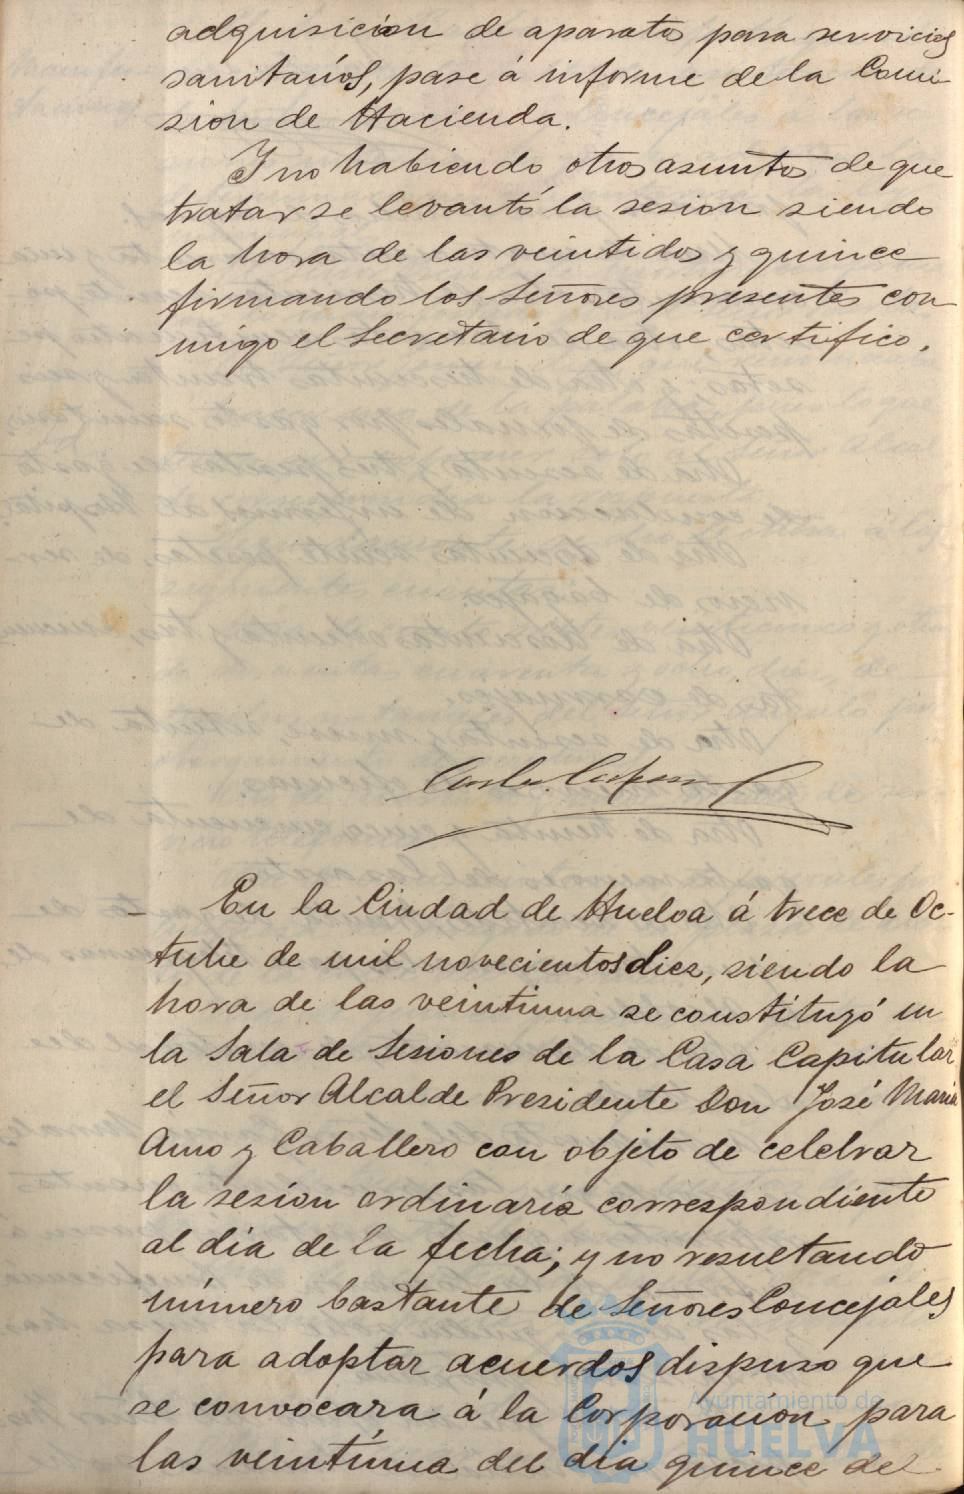 adquisición de aparatos para servicios
sanitarios, pase á informe de la Comi
sion de Hacienda.
Y no habiendo otros asuntos de que
tratar se levantó la sesion siendo
la hora de las veintidos y quince
firmando los Señores presentes con
migo el Secretario de que certifico.
En la Ciudad de Huelva á trece de Oc-
tubre de mil novecientos diez, siendo la
hora de las veintiuna se constituyó en
la Sala de Sesiones de la Casa Capitular
el Señor Alcalde Presidente Don José Maria
Amo y Caballero con objeto de celebrar
la sesion ordinaria correspondiente
al dia de la fecha; y no resultando
número bastante de Señores Concejales
para adoptar acuerdos dispuso que
se convocara á la Corporación para
las veintiuna del dia quince del
Ayuntamiento de
HUELVA